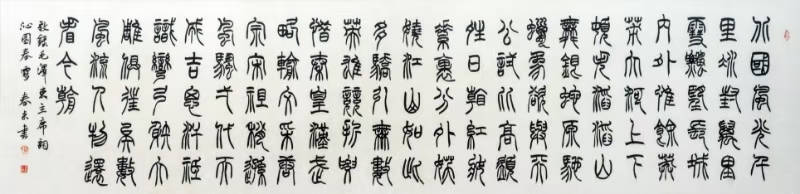 北國風光千
里冰封萬里
雪飄望長城
内外惟餘莽
莽大河上下
頓失滔滔山
舞銀蛇原馳
蠟象欲與天
公試比高須
晴日看紅裝
素裹分外妖
嬈江山如此
多嬌引無數
英雄競折腰
惜秦皇漢武
略輸文采唐
宗宋祖稍遜
風騷弌代天
成吉思汗祇
識彎弓射大
雕俱往矣數
風流人物還
看今朝
敬錄毛澤東主席詞
沁園春雪 春書